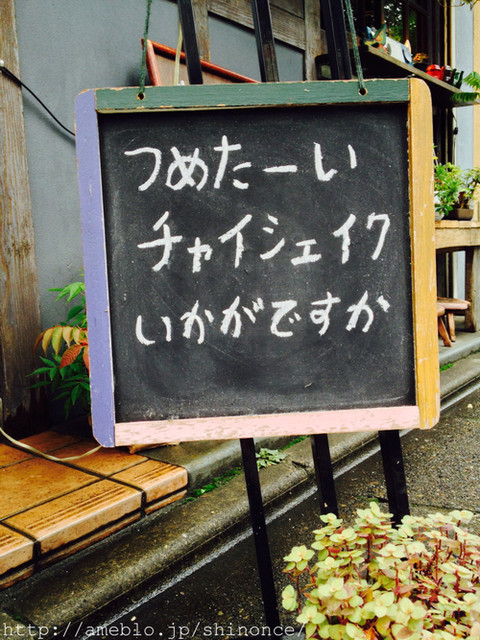 つめたーい
チャイシェイク
いかがですか
http://ameblo.jp/shinonce/